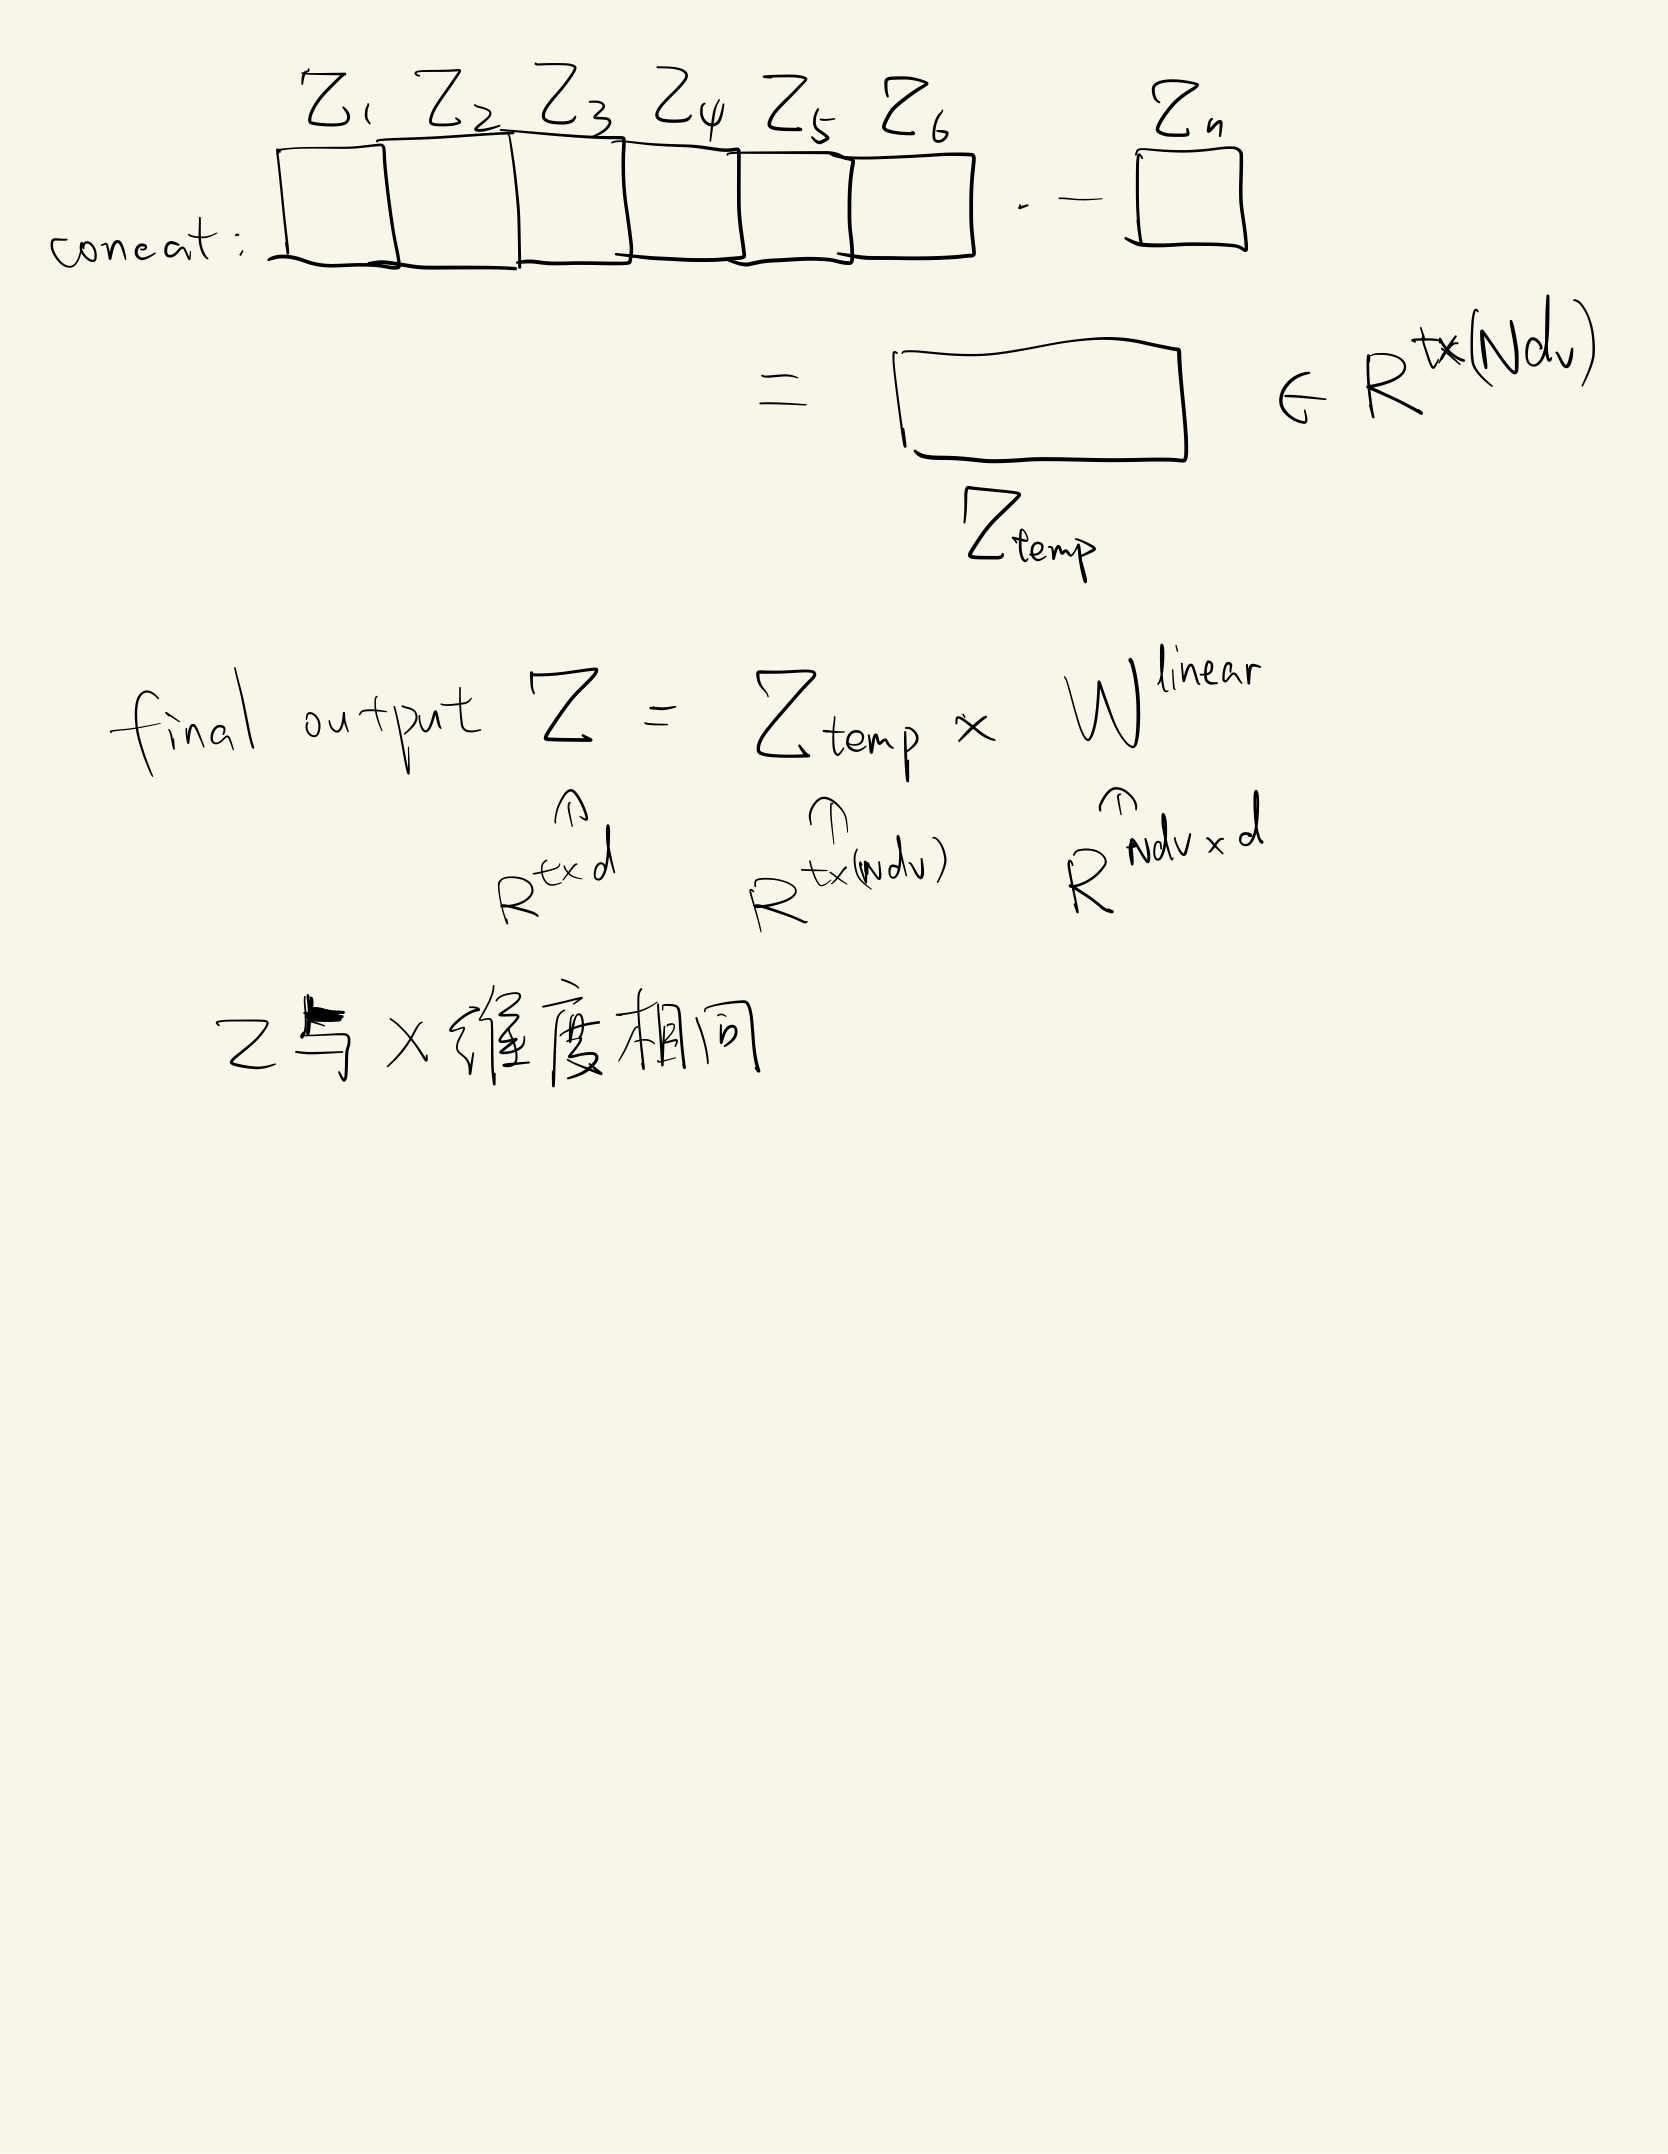 Z₁ Z₂ Z₃ Z₄ Z₅ Z₆ Zₙ
concat: . —
= ∈ R^{t×(Ndv)}
Z_temp
final output Z = Z_temp × W^{linear}
↑ ↑ ↑
R^{t×d} R^{t×(Ndv)} R^{Ndv×d}
Z与X维度相同